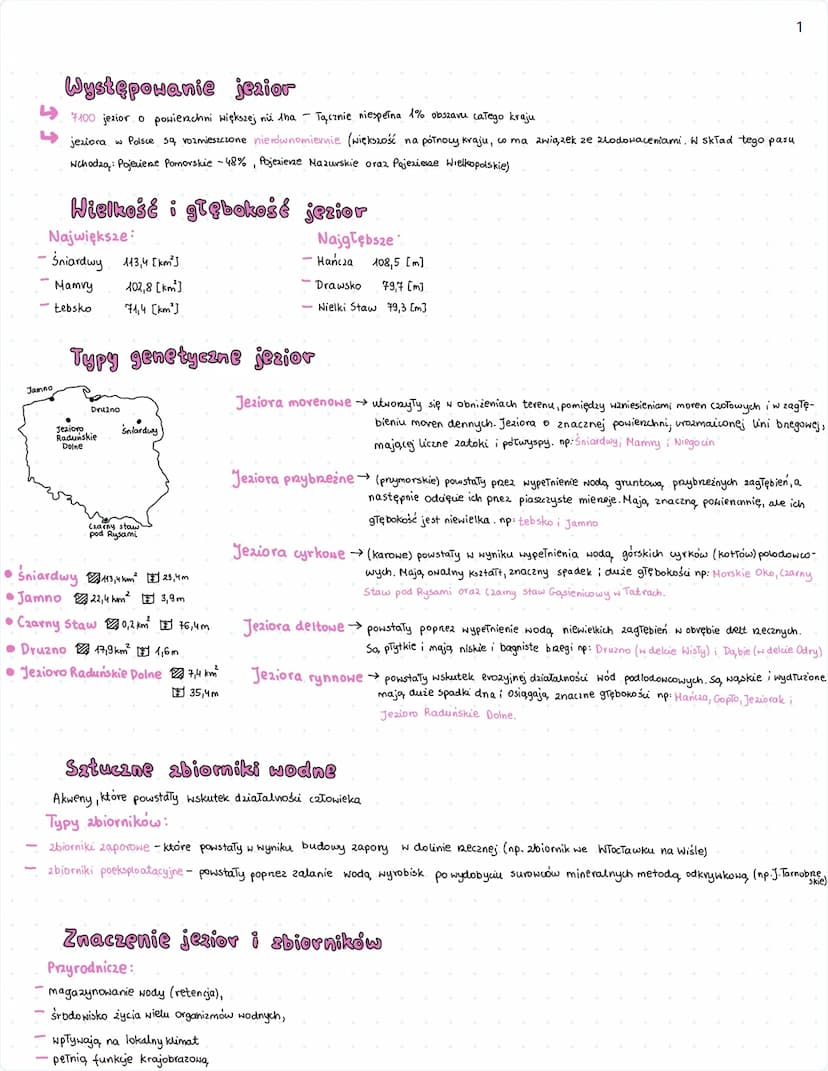 1
Występowanie jezior
7100 jezior o powierzchni większej niż 1ha - Łącznie niespełna 1% obszaru całego kraju
jeziora w Polsce są rozmieszczone nierównomiernie (większość na północy kraju, co ma związek ze zlodowaceniami. W skład tego pasu
wchodzą: Pojezierze Pomorskie ~48%, Pojezierze Mazurskie oraz Pojezierze Wielkopolskie)
Wielkość i głębokość jezior
Największe:
- Śniardwy 113,4 [km²]
- Mamry 102,8 [km²]
- Łebsko 71,4 [km²]
Najgłębsze
- Hańcza 108,5 [m]
- Drawsko 79,7 [m]
- Wielki Staw 79,3 [m]
Typy genetyczne jezior
Jamno
Druzno
Jezioro
Raduńskie
Dolne
Śniardwy
Czarny staw
pod Rysami
• Śniardwy 113,4 km² 23,4m
• Jamno 22,4 km² 3,9m
• Czarny Staw 0,2 km² 76,4m
• Druzno 17,9 km² 1,6m
• Jezioro Raduńskie Dolne 7,4 km²
35,4m
Jeziora morenowe → utworzyły się w obniżeniach terenu, pomiędzy wzniesieniami moren czołowych i w zagłę-
bieniu moren dennych. Jeziora o znacznej powierzchni, urozmaiconej lini brzegowej,
mającej liczne zatoki i półwyspy. np: Śniardwy, Mamry i Niegocin
Jeziora przybrzeżne → (przymorskie) powstały przez wypełnienie wodą gruntową przybrzeżnych zagłębień, a
następnie odcięcie ich przez piaszczyste mierzeje. Mają znaczną powierzchnię, ale ich
głębokość jest niewielka. np: Łebsko i Jamno
Jeziora cyrkowe → (karowe) powstały w wyniku wypełnienia wodą górskich cyrków (kotłów) polodowco-
wych. Mają owalny kształt, znaczny spadek i duże głębokości np: Morskie Oko, Czarny
Staw pod Rysami oraz Czarny Staw Gąsienicowy w Tatrach.
Jeziora deltowe → powstały poprzez wypełnienie wodą niewielkich zagłębień w obrębie delt rzecznych.
Są płytkie i mają niskie i bagniste brzegi np: Druzno (w delcie Wisły) i Dąbie (w delcie Odry)
Jeziora rynnowe → powstały wskutek erozyjnej działalności wód podlodowcowych. Są wąskie i wydłużone
mają duże spadki dna i osiągają znaczne głębokości np: Hańcza, Gopło, Jeziorak i
Jezioro Raduńskie Dolne.
Sztuczne zbiorniki wodne
Akweny, które powstały wskutek działalności człowieka
Typy zbiorników:
- zbiorniki zaporowe - które powstały w wyniku budowy zapory w dolinie rzecznej (np. zbiornik we Włocławku na Wiśle)
- zbiorniki poeksploatacyjne - powstały poprzez zalanie wodą wyrobisk po wydobyciu surowców mineralnych metodą odkrywkową (np. J. Tarnobrze
skie)
Znaczenie jezior i zbiorników
Przyrodnicze:
- magazynowanie wody (retencja),
- środowisko życia wielu organizmów wodnych,
- wpływają na lokalny klimat
- pełnią funkcje krajobrazową